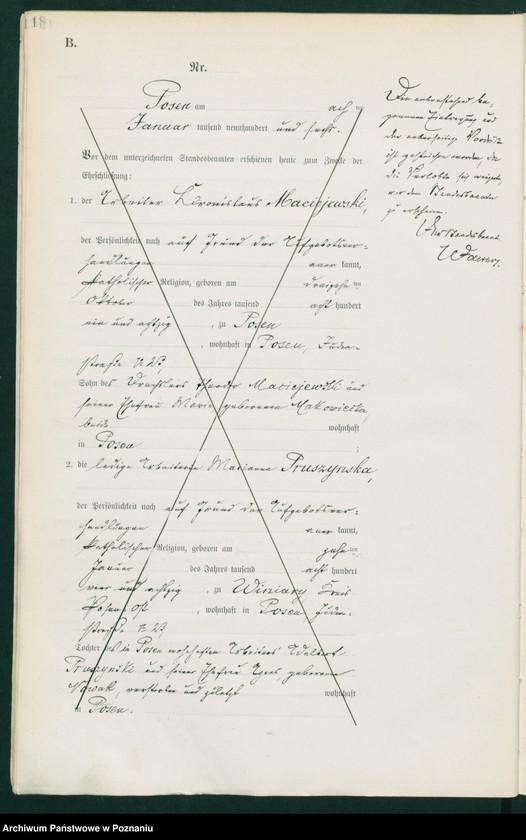 18
B.
Nr.
Posen am acht
Januar tausend neunhundert und sechs.
Vor dem unterzeichneten Standesbeamten erschienen heute zum Zwecke der
Eheschließung:
1. der Arbeiter Bronislaus Maciejewski,
der Persönlichkeit nach auf Grund der Aufgebotsver-
handlungen aner kannt,
katholischer Religion, geboren am dreizehn ten
Oktober des Jahres tausend acht hundert
ein und achtzig, zu Posen
, wohnhaft in Posen, Juden-
straße
Sohn des Drechslers Maciejewski und
seiner Ehefrau Maria geborenen Makowiecka,
beide wohnhaft
in Posen ;
2. die ledige Arbeiterin Marianna Pruszynska,
der Persönlichkeit nach auf Grund der Aufgebotsver-
handlungen aner kannt,
katholischer Religion, geboren am zehn ten
Januar des Jahres tausend acht hundert
vier und achtzig, zu Winiary Kreis
Posen Ost, wohnhaft in Posen, Juden-
straße
Tochter des in Posen wohnhaften Arbeiters Adalbert
Pruszynski und seiner Ehefrau Agnes, geborenen
Nowak, verstorben und zuletzt wohnhaft
in Posen.
Die nebenstehend be-
gonnene Eintragung und
der Vordruck
ist gestrichen worden, da
die Verlobte sich weigerte,
vor dem Standesbeamten
zu erscheinen.
Der Standesbeamte.
Archiwum Państwowe w Poznaniu